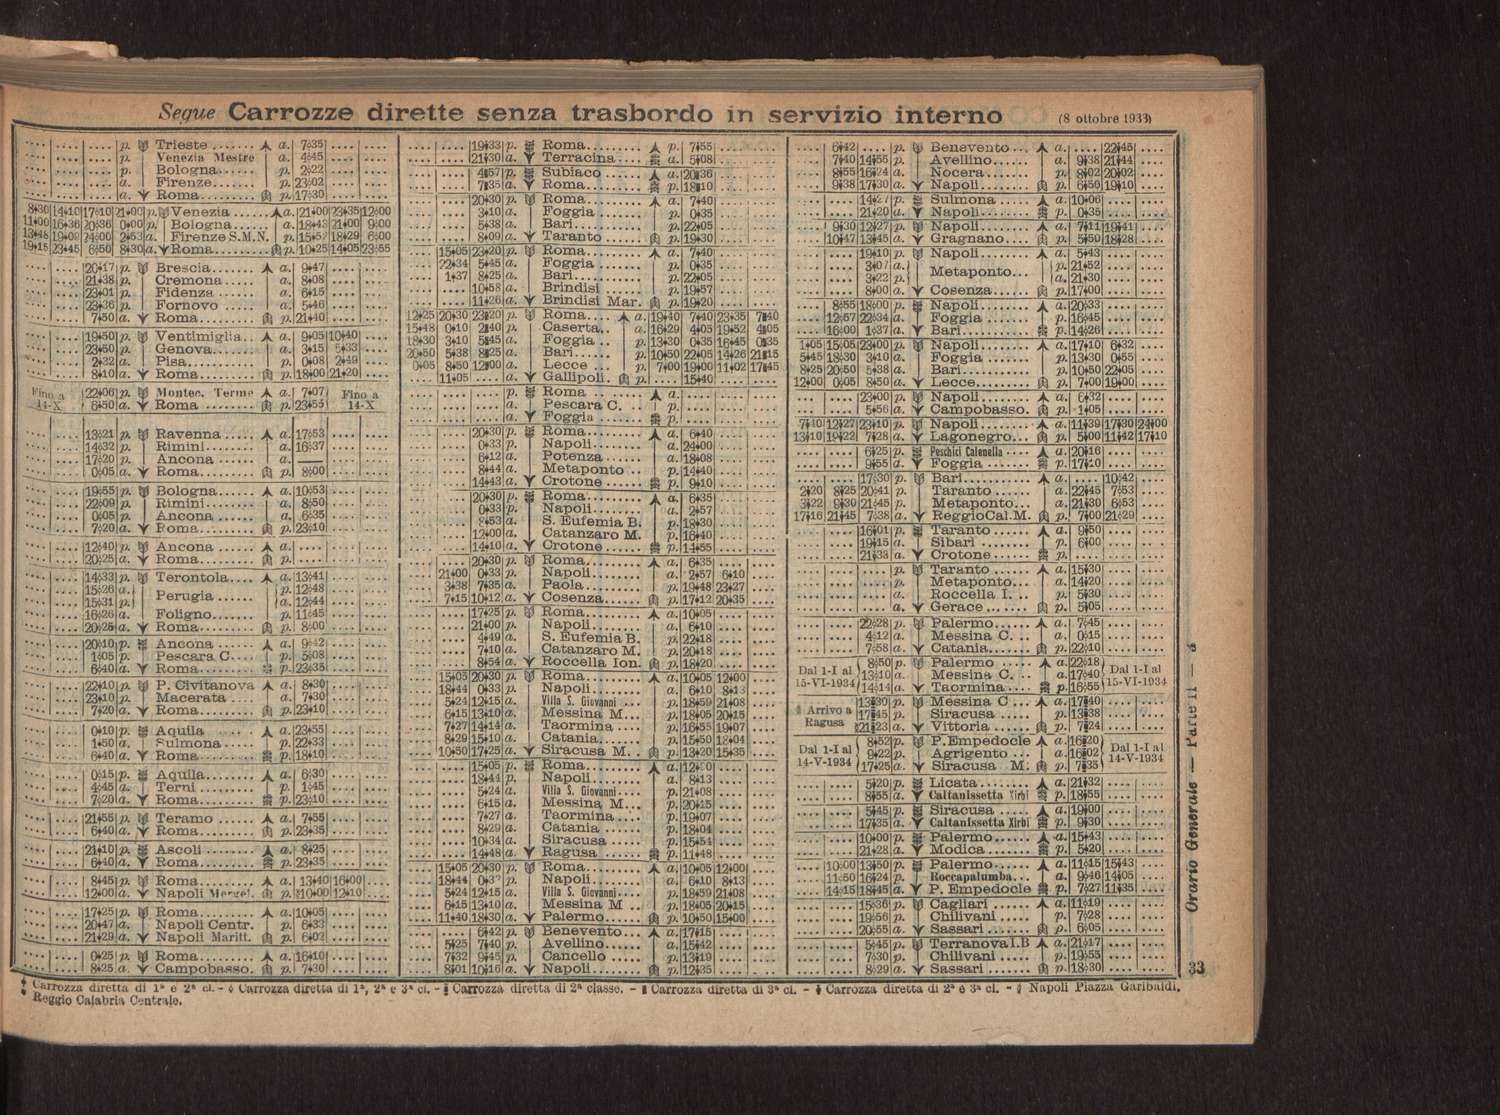 Segue Carrozze dirette senza trasbordo in servizio interno (8 ottobre 1933)
p. Trieste a. 7 35
p. Venezia Mestre 4 45
p. Bologna p. 2 22
a. Firenze 23 02
a. Roma p. 17 30
8 30 14 10 17 10 21 00 p. Venezia a. 21 00 23 35 12 00
11 00 16 36 20 36 0 00 p. Bologna 18 43 21 00 9 00
13 45 19 09 0 00 2 53 a. Firenze S.M.N. p. 15 52 18 29 6 00
19 15 23 45 6 50 8 30 a. Roma p. 10 25 14 05 23 55
20 17 p. Brescia a. 9 47
21 38 p. Cremona a. 8 08
23 01 p. Fidenza 6 15
23 36 p. Fornovo 5 46
7 50 a. Roma p. 21 40
19 50 p. Ventimiglia a. 9 05 10 40
23 50 p. Genova a. 3 15 5 33
2 32 p. Pisa p. 0 08 2 49
8 10 a. Roma p. 18 00 21 20
Fino a 14-X 22 06 p. Montec. Terme a. 7 07 Fino a 14-X
6 50 a. Roma p. 23 55
13 21 p. Ravenna a. 17 53
14 32 p. Rimini a. 16 37
17 20 p. Ancona a.
0 05 a. Roma p. 8 00
19 55 p. Bologna a. 10 53
22 09 p. Rimini a. 8 50
0 05 p. Ancona a. 6 35
7 20 a. Roma p. 23 10
12 40 p. Ancona a.
20 25 a. Roma p.
14 33 p. Terontola a. 13 41
15 26 a. Perugia p. 12 48
15 31 p. a. 12 44
16 26 a. Foligno p. 11 45
20 25 a. Roma p. 8 00
20 10 p. Ancona a. 9 42
1 05 p. Pescara C. p. 5 08
6 40 a. Roma p. 23 35
22 10 p. P. Civitanova a. 8 30
23 10 p. Macerata 7 30
7 20 a. Roma p. 23 10
0 10 p. Aquila a. 23 55
1 50 a. Sulmona p. 22 33
6 40 a. Roma p. 18 10
0 15 p. Aquila a. 6 30
4 45 a. Terni p. 1 45
7 20 a. Roma p. 23 10
21 55 p. Teramo a. 7 55
6 40 a. Roma p. 23 35
21 10 p. Ascoli a. 8 25
6 40 a. Roma p. 23 35
8 45 p. Roma a. 13 40 16 00
12 00 a. Napoli Mergel. p. 10 00 12 10
17 25 p. Roma a. 10 05
20 47 a. Napoli Centr. p. 6 33
21 29 a. Napoli Maritt. p. 6 02
0 25 p. Roma a. 16 10
8 25 a. Campobasso. p. 7 30
19 33 p. Roma p. 7 55
21 30 a. Terracina a. 5 08
4 57 p. Subiaco a. 20 36
7 35 a. Roma p. 18 10
20 30 p. Roma a. 7 40
3 10 a. Foggia p. 0 35
5 38 a. Bari p. 22 05
8 09 a. Taranto p. 19 30
15 05 23 20 p. Roma a. 7 40
22 34 5 45 a. Foggia p. 0 35
1 37 8 25 a. Bari p. 22 05
10 58 a. Brindisi p. 19 57
11 26 a. Brindisi Mar. p. 19 20
12 25 20 30 23 20 p. Roma a. 19 40 7 40 23 35 7 40
15 48 0 10 2 40 p. Caserta a. 16 29 4 05 19 52 4 05
18 30 3 10 5 45 a. Foggia p. 13 30 0 35 16 45 0 35
20 50 5 38 8 25 a. Bari p. 10 50 22 05 14 26 21 15
0 05 8 50 12 00 a. Lecce p. 7 00 19 00 11 02 17 45
11 05 a. Gallipoli p. 15 40
p. Roma a.
a. Pescara C. p.
a. Foggia p.
20 30 p. Roma a. 6 40
0 33 p. Napoli a. 24 00
6 12 a. Potenza p. 18 08
8 44 a. Metaponto p. 14 40
14 43 a. Crotone p. 9 10
20 30 p. Roma a. 6 35
0 33 p. Napoli a. 2 57
8 53 a. S. Eufemia B. p. 18 30
12 00 a. Catanzaro M. p. 16 40
14 10 a. Crotone p. 14 55
20 30 p. Roma a. 6 35
21 00 0 33 p. Napoli a. 2 57 6 10
3 38 7 35 a. Paola p. 19 48 23 27
7 15 10 12 a. Cosenza p. 17 12 20 35
17 25 p. Roma a. 10 05
21 00 p. Napoli a. 6 10
4 49 a. S. Eufemia B. p. 22 18
7 10 a. Catanzaro M. p. 20 18
8 54 a. Roccella Ion. p. 18 20
15 05 20 30 p. Roma a. 10 05 12 00
18 44 0 33 p. Napoli a. 6 10 8 13
5 24 12 15 a. Villa S. Giovanni p. 18 59 21 08
6 15 13 10 a. Messina M. p. 18 05 20 15
7 27 14 14 a. Taormina p. 16 55 19 07
8 29 15 10 a. Catania p. 15 50 18 04
10 50 17 25 a. Siracusa M. p. 13 20 15 35
15 05 p. Roma a. 12 00
18 44 p. Napoli a. 8 13
5 24 a. Villa S. Giovanni p. 21 08
6 15 a. Messina M. p. 20 15
7 27 a. Taormina p. 19 07
8 29 a. Catania p. 18 04
10 34 a. Siracusa p. 15 54
14 48 a. Ragusa p. 11 48
15 05 20 30 p. Roma a. 10 05 12 00
18 44 0 3 p. Napoli a. 6 10 8 13
5 24 12 15 a. Villa S. Giovanni p. 18 59 21 08
6 15 13 10 a. Messina M p. 18 05 20 15
11 40 18 30 a. Palermo p. 10 50 15 00
6 42 p. Benevento a. 17 15
5 25 7 40 a. Avellino p. 15 42
7 32 9 45 a. Cancello p. 13 19
8 01 10 16 a. Napoli p. 12 35
6 42 p. Benevento a. 22 45
7 40 14 55 p. Avellino a. 9 38 21 44
8 55 16 24 a. Nocera p. 8 02 20 02
9 38 17 30 a. Napoli p. 6 50 19 10
14 27 p. Sulmona a. 10 06
21 20 a. Napoli p. 0 35
9 30 12 27 p. Napoli a. 7 11 19 41
10 47 13 45 a. Gragnano p. 5 50 18 28
19 10 p. Napoli a. 5 43
3 07 a. Metaponto p. 21 52
3 22 p. a. 21 30
8 00 a. Cosenza p. 17 00
8 55 18 00 p. Napoli a. 20 33
12 57 22 34 p. Foggia p. 16 45
16 00 1 37 a. Bari p. 14 26
1 05 15 05 23 00 p. Napoli a. 17 10 6 32
5 45 18 30 3 10 a. Foggia p. 13 30 0 55
8 25 20 50 5 38 a. Bari p. 10 50 22 05
12 00 0 05 8 50 a. Lecce p. 7 00 19 00
23 00 p. Napoli a. 6 32
5 56 a. Campobasso. p. 1 05
7 10 12 27 23 10 p. Napoli a. 11 39 17 30 24 00
13 10 19 22 7 28 a. Lagonegro p. 5 00 11 42 17 10
6 25 p. Peschici Calenella a. 20 16
9 55 a. Foggia p. 17 10
17 30 p. Bari a. 10 42
2 20 8 25 20 41 p. Taranto a. 22 45 7 53
3 22 9 30 21 45 p. Metaponto a. 21 30 6 53
17 16 21 45 7 38 a. Reggio Cal. M. p. 7 00 21 29
16 01 p. Taranto a. 9 50
19 15 a. Sibari p. 6 00
21 33 a. Crotone p.
p. Taranto a. 15 30
p. Metaponto a. 14 20
a. Roccella I. p. 5 30
a. Gerace p. 5 05
22 28 p. Palermo a. 7 45
4 12 a. Messina C. a. 0 15
7 58 a. Catania p. 22 10
Dal 1-I al 15-VI-1934 8 50 p. Palermo a. 22 18 Dal 1-I al 15-VI-1934
13 10 a. Messina C. a. 17 40
14 14 a. Taormina p. 16 55
Arrivo a Ragusa 13 30 p. Messina C a. 17 40
17 45 p. Siracusa p. 13 38
21 23 a. Vittoria p. 7 24
Dal 1-I al 14-V-1934 8 52 p. P. Empedocle a. 16 20 Dal 1-I al 14-V-1934
9 22 p. Agrigento a. 16 02
17 25 a. Siracusa M. p. 7 35
5 20 p. Licata a. 21 32
8 55 a. Caltanissetta Xirbi p. 18 55
5 45 p. Siracusa a. 19 00
17 35 a. Caltanissetta Xirbi p. 9 30
10 00 p. Palermo a. 15 43
21 28 a. Modica p. 5 20
10 00 13 50 p. Palermo a. 11 45 15 43
11 50 16 24 p. Roccapalumba a. 9 46 14 05
14 15 18 45 a. P. Empedocle p. 7 27 11 35
15 36 p. Cagliari a. 11 19
19 56 p. Chilivani p. 7 28
20 55 a. Sassari p. 6 05
5 45 p. Terranova I.B a. 21 17
7 30 p. Chilivani p. 19 55
8 29 a. Sassari p. 18 30
Orario Generale — Parte II — 3
33
Carrozza diretta di 1ª e 2ª cl. - Carrozza diretta di 1ª, 2ª e 3ª cl. - Carrozza diretta di 2ª classe. - Carrozza diretta di 3ª cl. - Carrozza diretta di 2ª e 3ª cl. - Napoli Piazza Garibaldi.
Reggio Calabria Centrale.